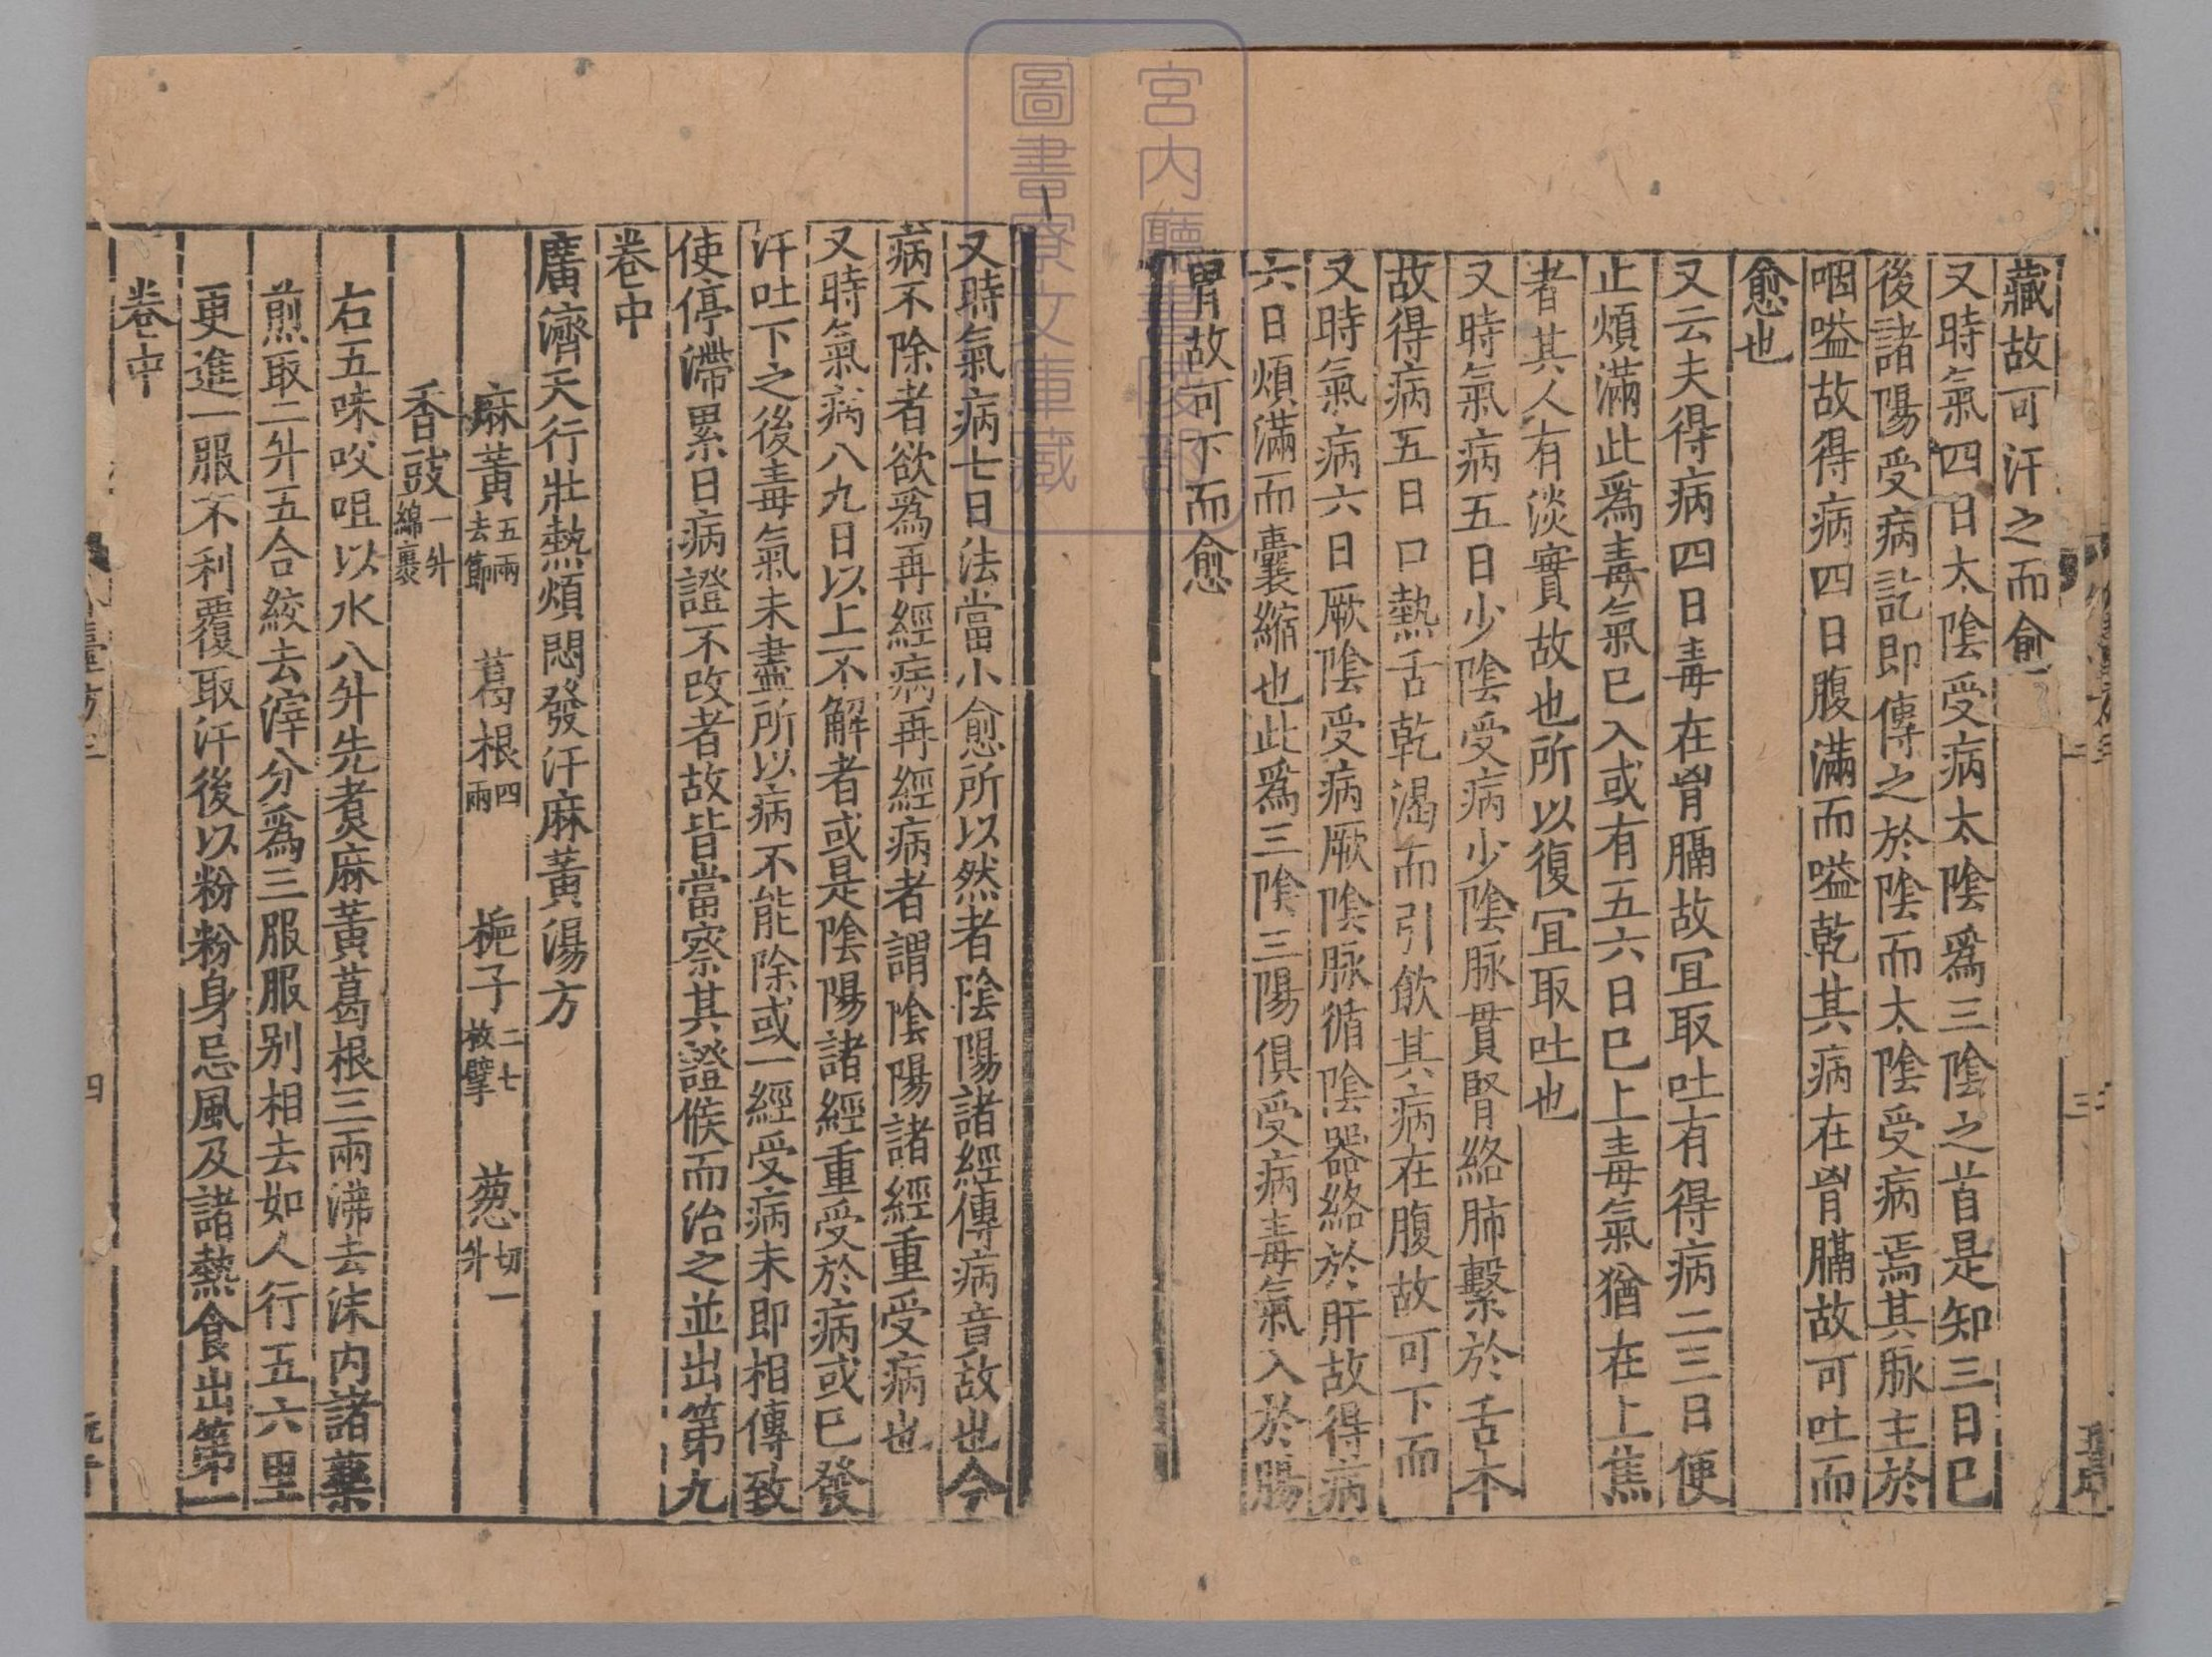 藏故可汗之而愈
又時氣四日太陰受病太陰爲三陰之首是知三日已
後諸陽受病訖即傳之於陰而太陰受病焉其脉主於
咽嗌故得病四日腹滿而嗌乾其病在胷膈故可吐而
愈也
又云夫得病四日毒在胷膈故冝取吐有得病二三日便
止煩滿此爲毒氣已入或有五六日已上毒氣猶在上焦
者其人有淡實故也所以復冝取吐也
又時氣病五日少陰受病少陰脉貫腎絡肺繫於舌本
故得病五日口熱舌乾渴而引飲其病在腹故可下而
又時氣病六日厥陰受病厥陰脉循陰器絡於肝故得病
六日煩滿而囊縮也此爲三陰三陽俱受病毒氣入於腸
胃故可下而愈
又時氣病七日法當小愈所以然者陰陽諸經傳病竟故也今
病不除者欲爲再經病再經病者謂陰陽諸經重受病也
又時氣病八九日以上不解者或是陰陽諸經重受於病或已發
汗吐下之後毒氣未盡所以病不能除或一經受病未即相傳致
使停滯累日病證不改者故皆當察其證候而治之並出第九
卷中
廣濟天行壯熱煩悶發汗麻黃湯方
麻黃五兩去節 葛根四兩 梔子二七枚擘 葱切一升
香豉一升綿裹
右五味㕮咀以水八升先煑麻黃葛根三兩沸去沫内諸藥
煎取二升五合絞去滓分爲三服服别相去如人行五六里
更進一服不利覆取汗後以粉粉身忌風及諸熱食出第一
卷中
臺方三
四
宮内廳書陵部
圖書寮文庫藏